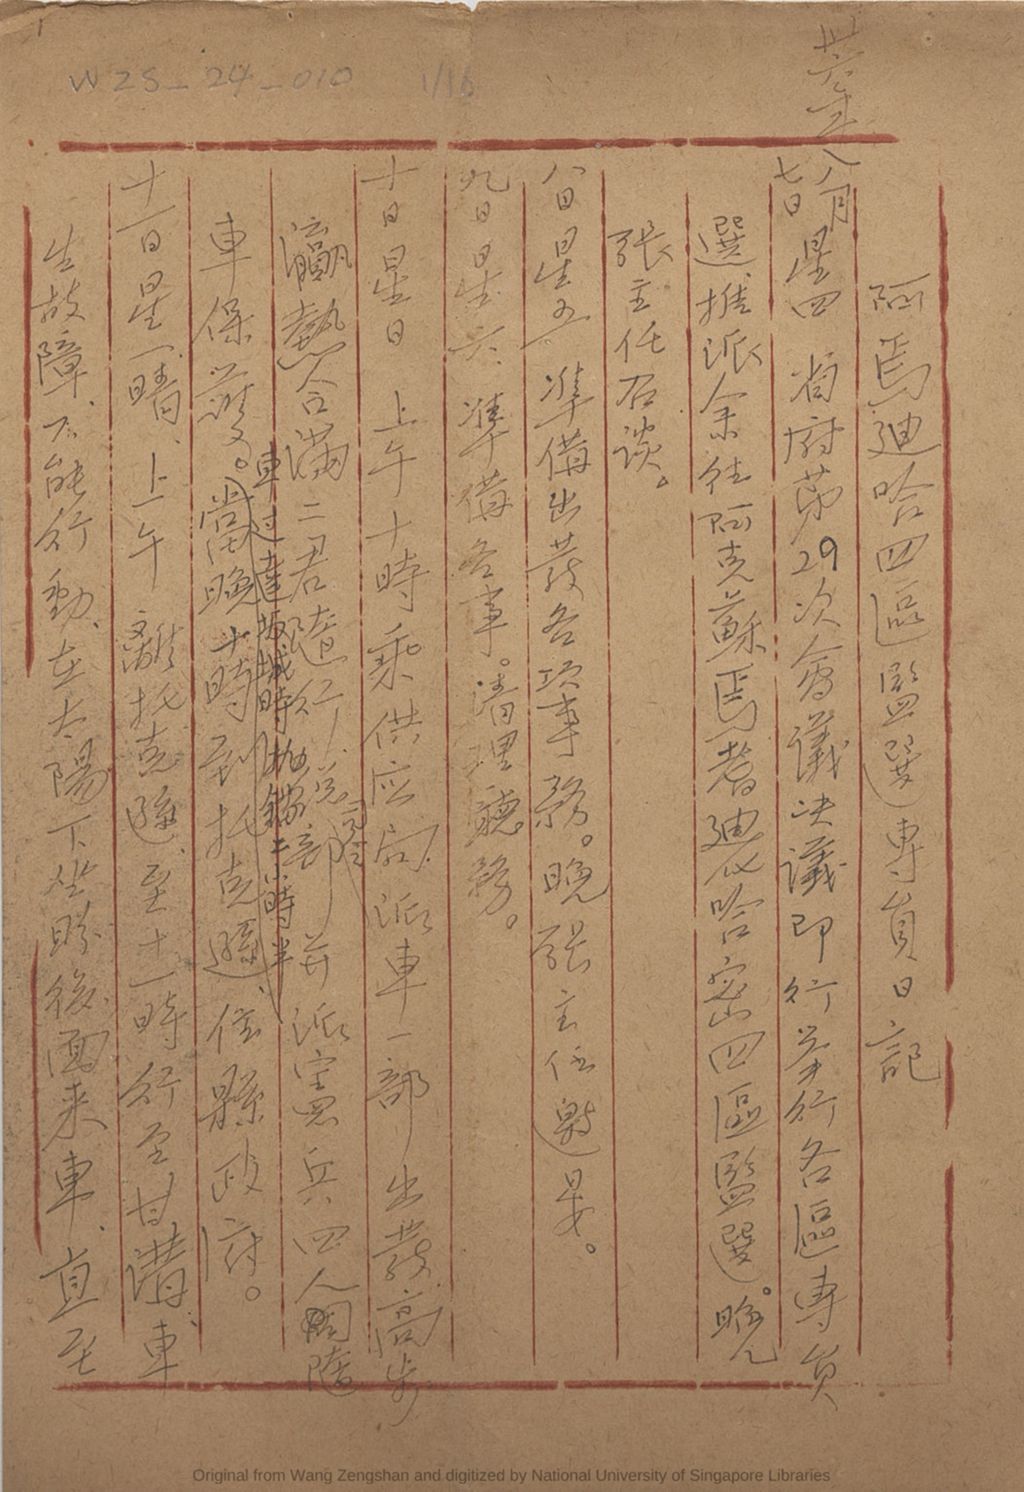 WZS_24_010 1/16
卅六年
阿焉迪哈四區監選專員日記
八月七日星四 省府第29次會議決議即行举行各區專員
選、推派余往阿克蘇焉耆迪化哈密四區監選。晚
張主任召談。
八日星五 準備出發各項事務。晚張主任邀宴。
九日星六 準備各事。清理廳務。
十日星日 上午十時乘供应局派車一部出發高步
瀛熱合滿二君隨行、 司令部並派憲兵四人隨
車保護。車过達坂城時抛錨二小時半當晚十時到托克遜、住縣政府。
十一日星一晴、上午離托克遜、至十一時行至甘溝、車
生故障、不能行動、在太陽下坐盼後面来車、直至
Original from Wang Zengshan and digitized by National University of Singapore Libraries